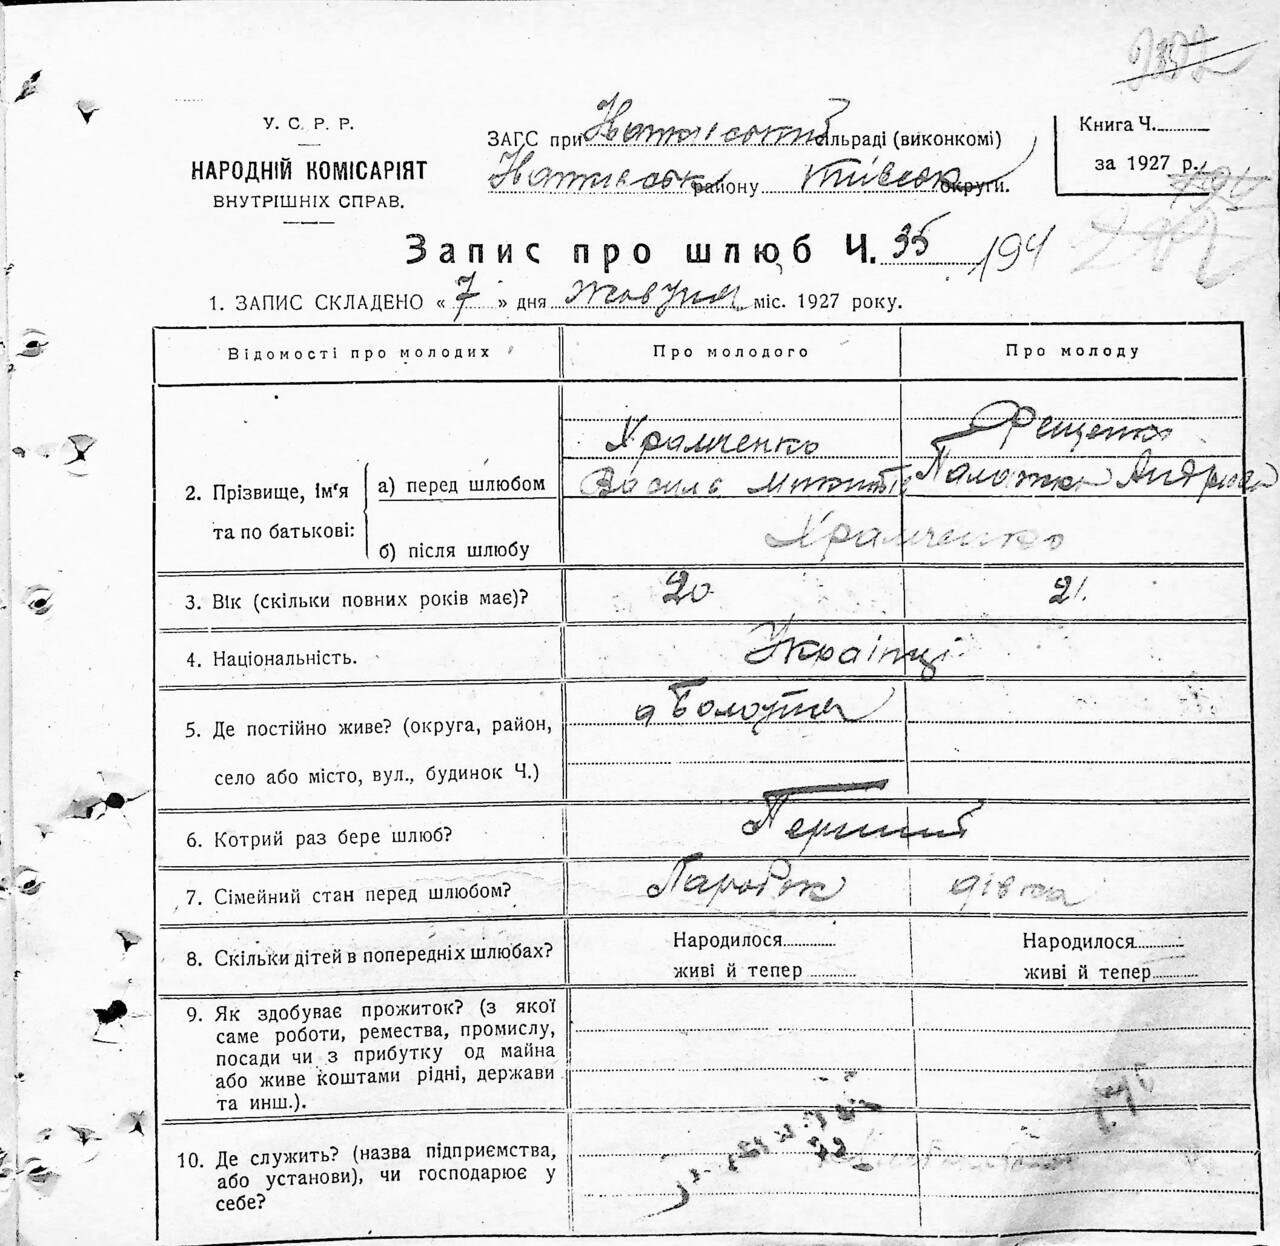 У. С. Р. Р.
НАРОДНІЙ КОМІСАРІЯТ
ВНУТРІШНІХ СПРАВ.
ЗАГС при сільраді (виконкомі)
району округи.
Книга Ч.
за 1927 р.
Запис про шлюб Ч. 35 194
1. ЗАПИС СКЛАДЕНО « 7 » дня жовтня міс. 1927 року.
Відомості про молодих Про молодого Про молоду
2. Прізвище, ім'я та по батькові:
а) перед шлюбом
Храмченко
Василь
Палажка
б) після шлюбу
Храмченко
3. Вік (скільки повних років має)? 20 21.
4. Національність. Українці
5. Де постійно живе? (округа, район,
село або місто, вул., будинок Ч.)
6. Котрий раз бере шлюб? Перший
7. Сімейний стан перед шлюбом? Паробок дівка
8. Скільки дітей в попередніх шлюбах? Народилося Народилося
живі й тепер живі й тепер
9. Як здобуває прожиток? (з якої
саме роботи, ремества, промислу,
посади чи з прибутку од майна
або живе коштами рідні, держави
та инш.).
10. Де служить? (назва підприємства,
або установи), чи господарює у
себе?